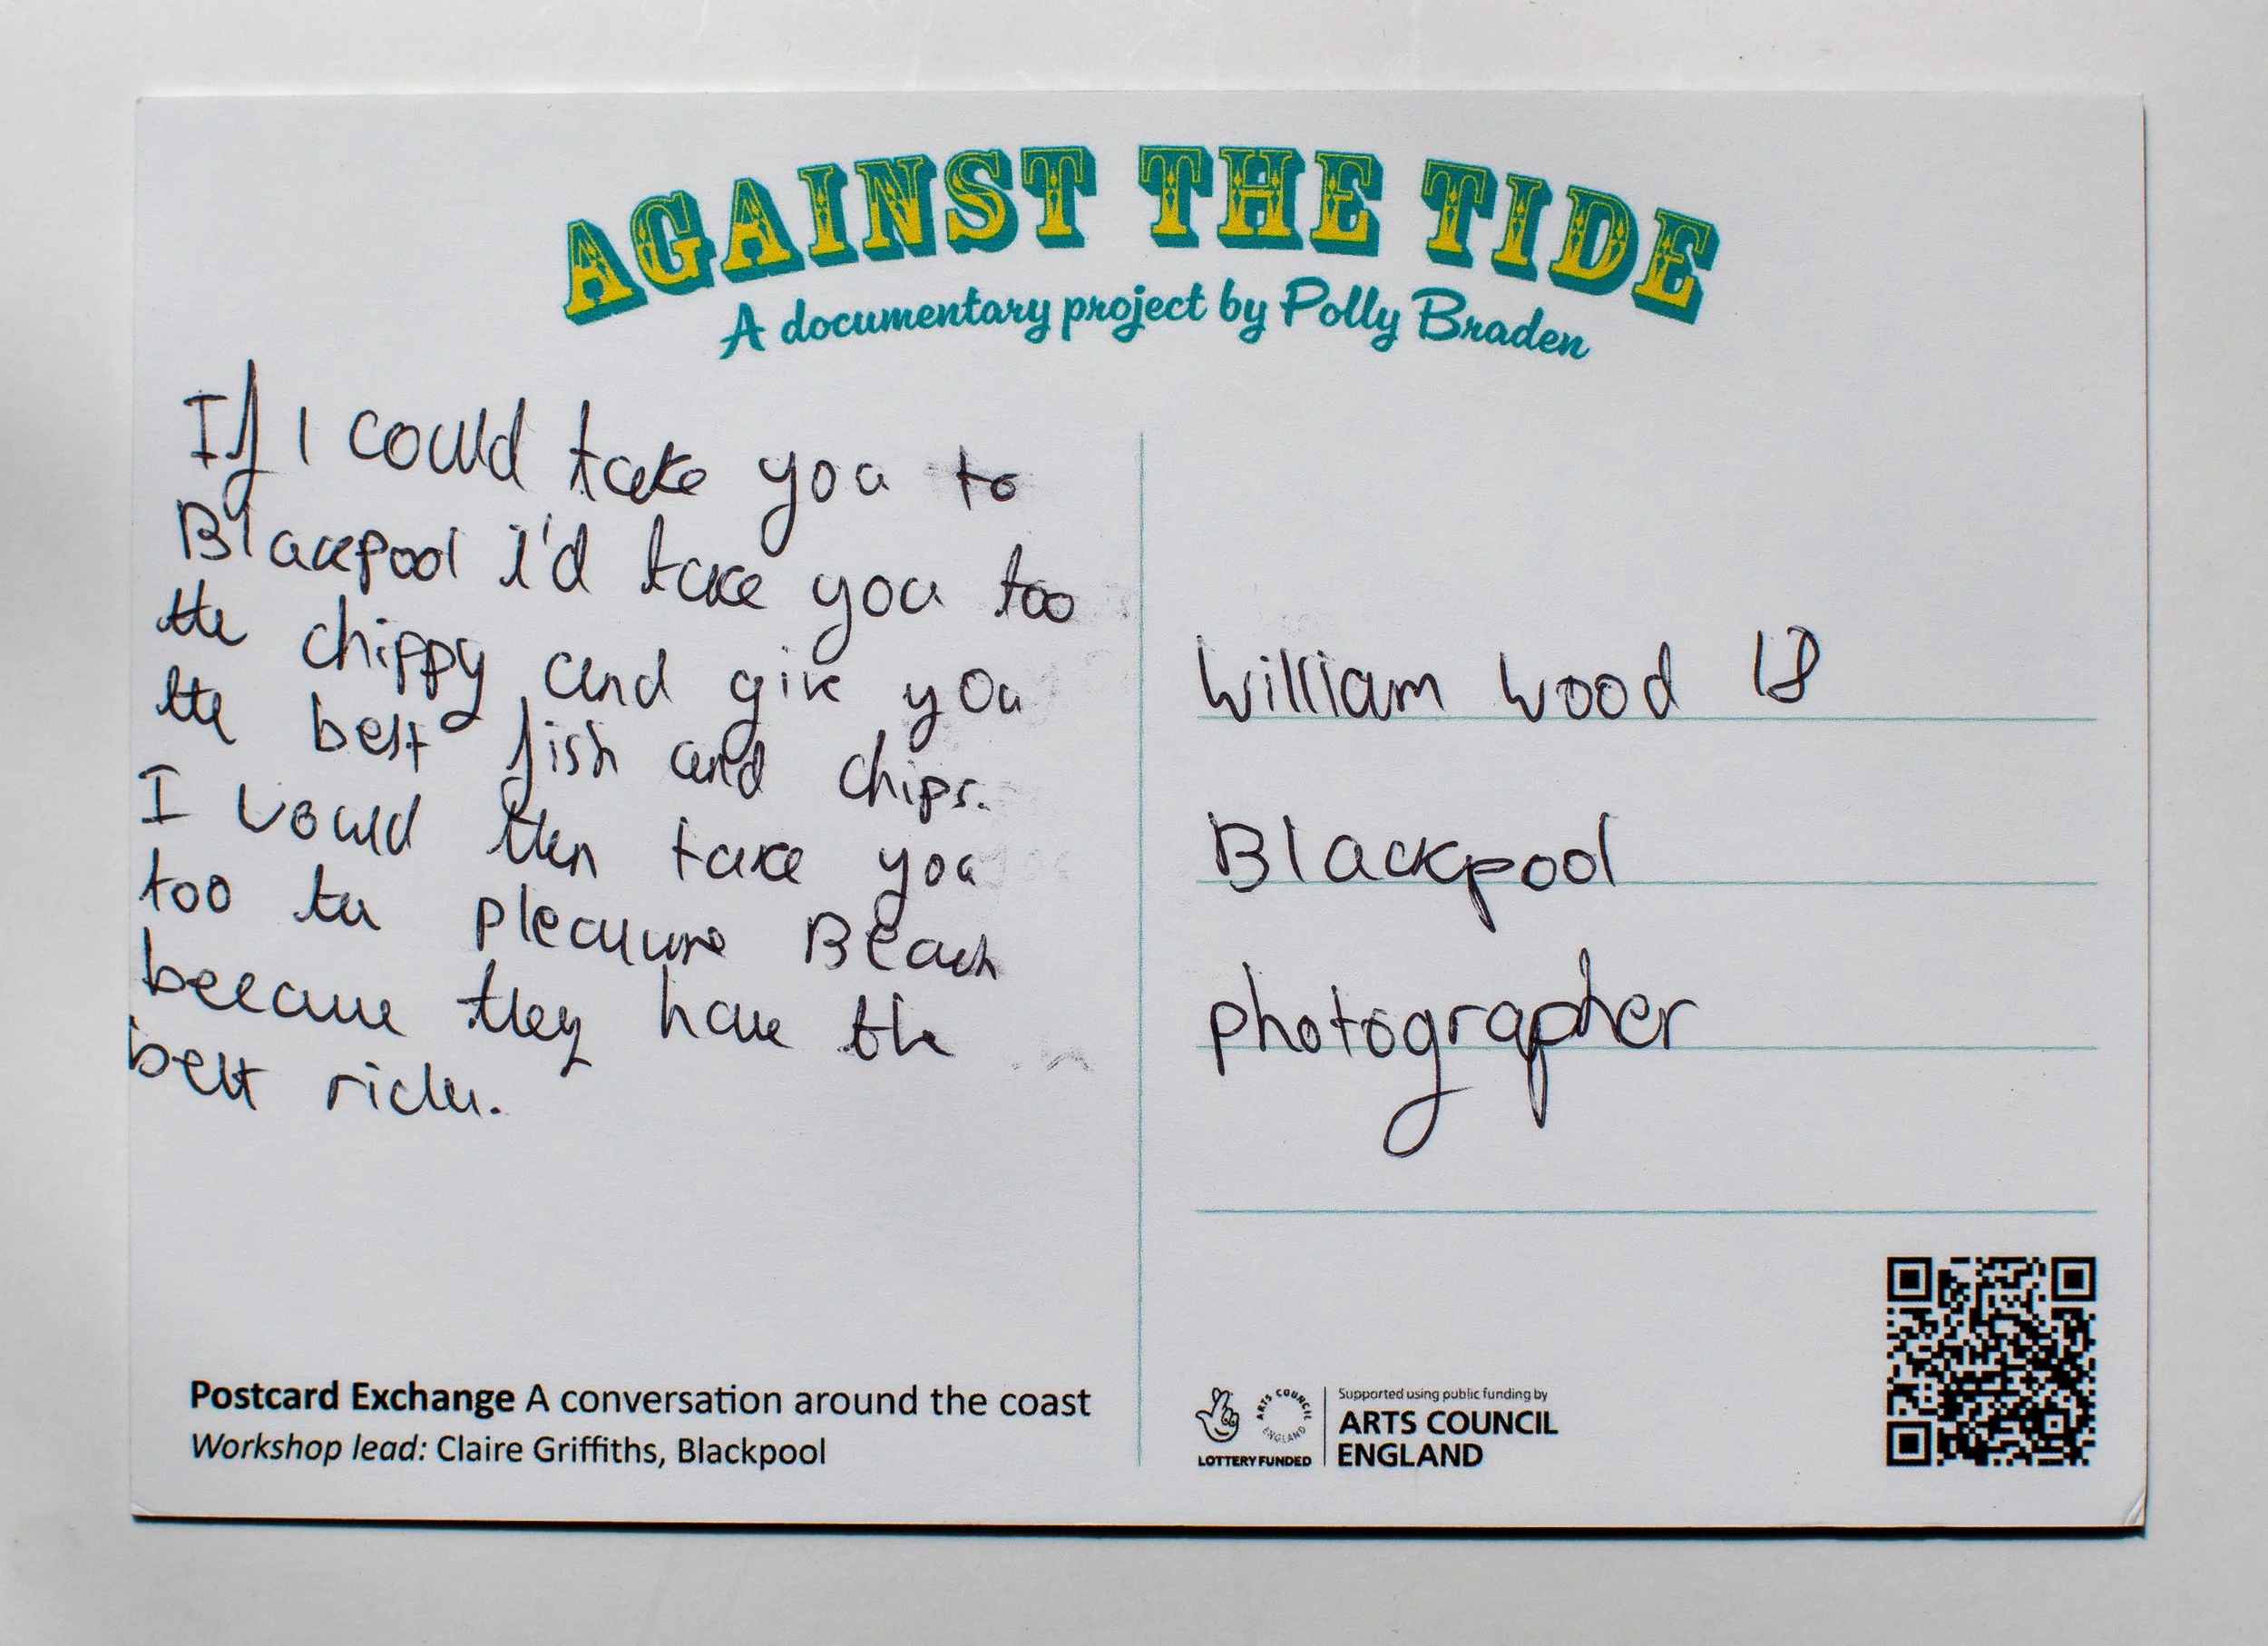 AGAINST THE TIDE
A documentary project by Polly Braden
If I could take you to
Blackpool i'd take you too
the chippy and give you
the best fish and chips.
I would then take you
too the pleasure Beach
because they have the
best rides.
William Wood 18
Blackpool
photographer
Postcard Exchange A conversation around the coast
Workshop lead: Claire Griffiths, Blackpool
LOTTERY FUNDED
ARTS COUNCIL ENGLAND
Supported using public funding by
ARTS COUNCIL
ENGLAND